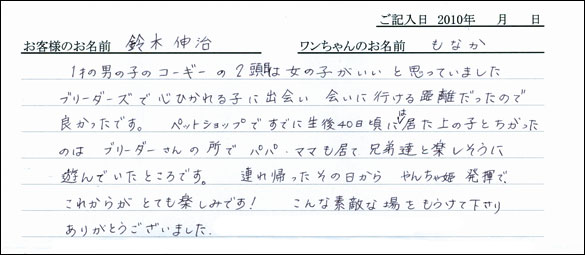 ご記入日 2010年　月　日
お客様のお名前 鈴木伸治　ワンちゃんのお名前 もなか
1才の男の子のコーギーの2頭目は女の子がいいと思っていました
ブリーダーズで心ひかれる子に出会い 会いに行ける距離だったので
良かったです。 ペットショップですでに生後40日頃には居た上の子とちがった
のは ブリーダーさんの所で パパ・ママも居て 兄弟達と楽しそうに
遊んでいたところです。 連れ帰ったその日から やんちゃ姫 発揮で、
これからがとても楽しみです! こんな素敵な場をもうけて下さり
ありがとうございました.